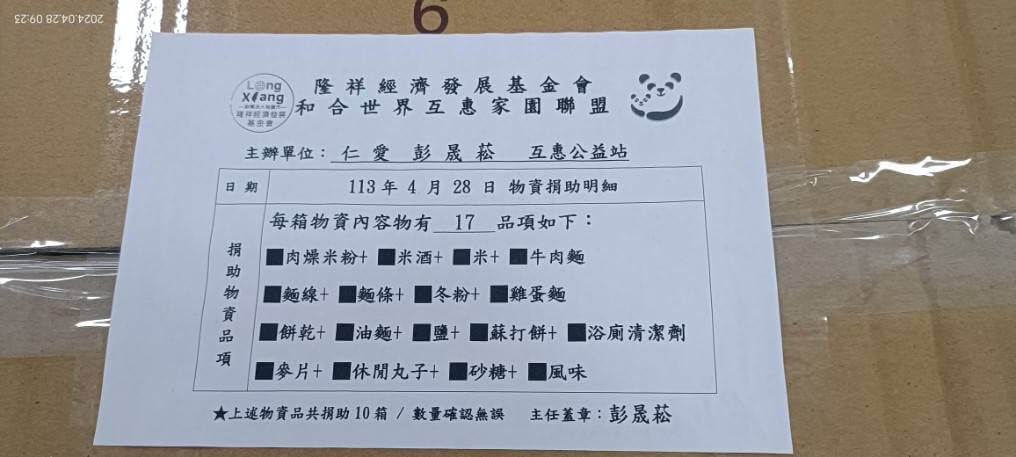 2024.04.28 09:23
6
Long
Xiang
隆祥經濟發展
基金會
隆祥經濟發展基金會
和合世界互惠家園聯盟
主辦單位：仁愛 彭晟菘 互惠公益站
日期 113年4月28日 物資捐助明細
捐助物資品項
每箱物資內容物有 17 品項如下：
■肉燥米粉+ ■米酒+ ■米+ ■牛肉麵
■麵線+ ■麵條+ ■冬粉+ ■雞蛋麵
■餅乾+ ■油麵+ ■鹽+ ■蘇打餅+ ■浴廁清潔劑
■麥片+ ■休閒丸子+ ■砂糖+ ■風味
★上述物資品共捐助10箱 / 數量確認無誤 主任蓋章：彭晟菘